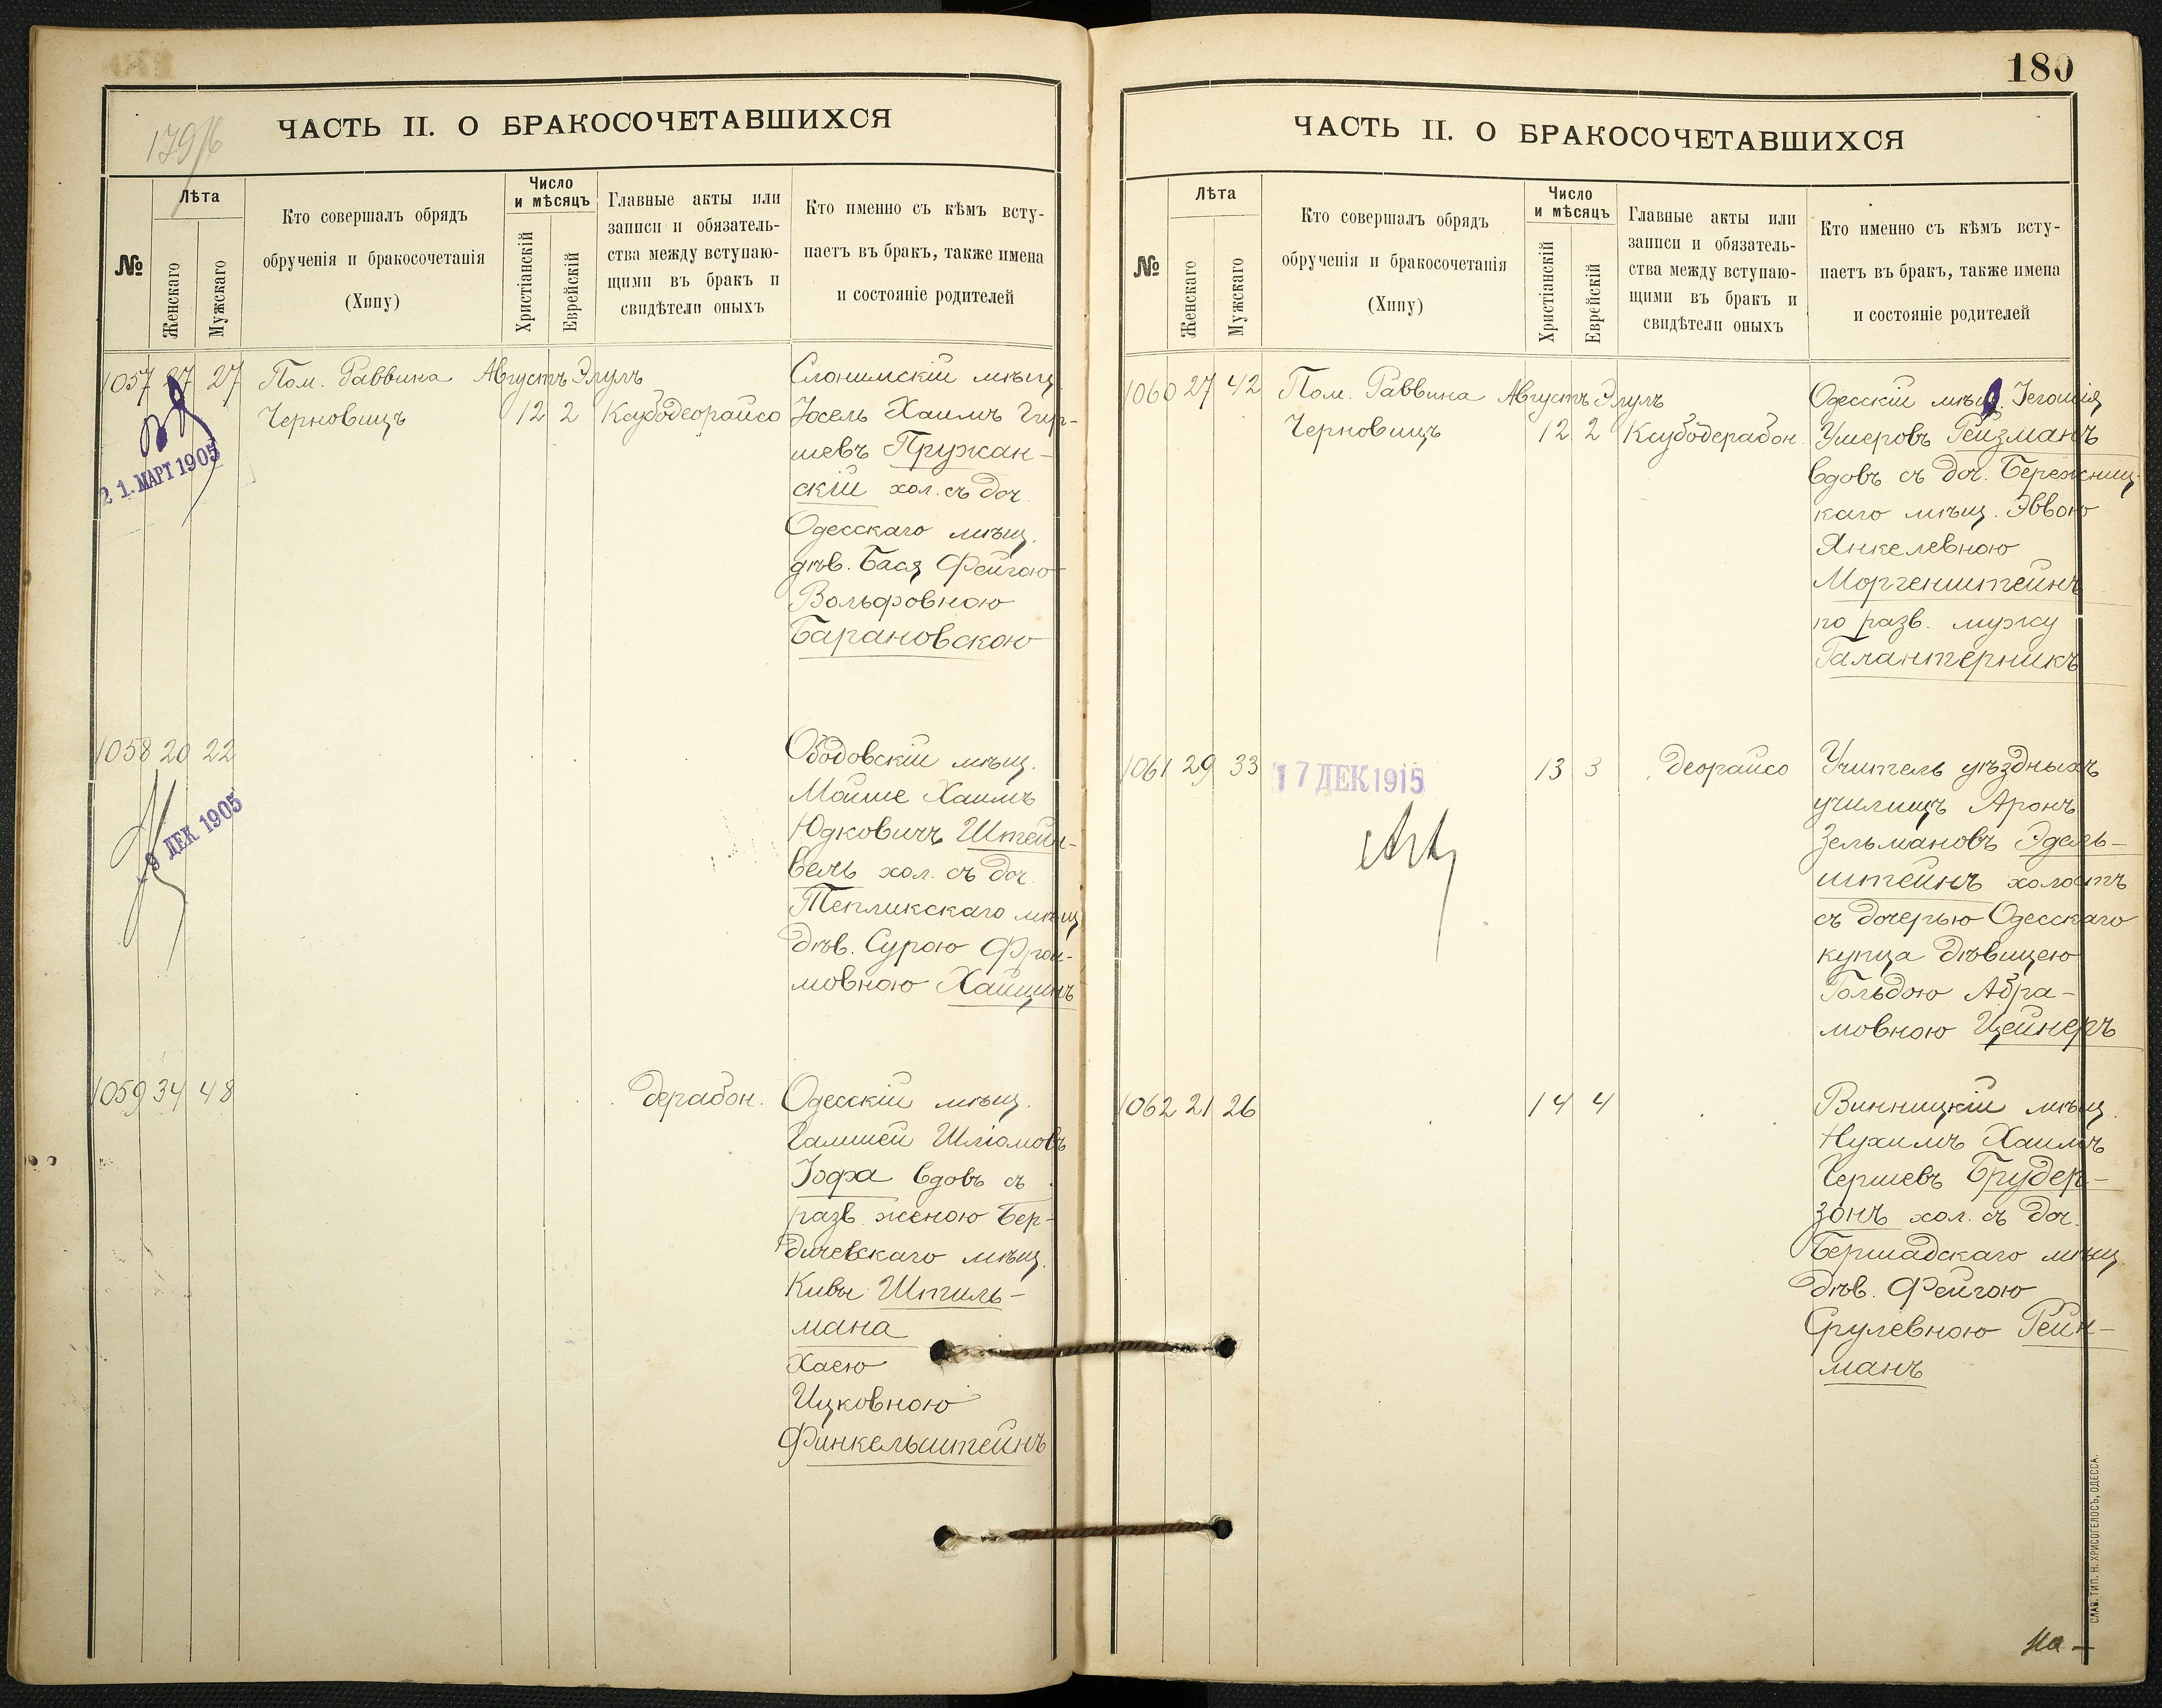 179/6
ЧАСТЬ II. О БРАКОСОЧЕТАВШИХСЯ
№
Лѣта
Женскаго
Мужскаго
Кто совершалъ обрядъ
обрученія и бракосочетанія
(Хипу)
Число
и мѣсяцъ
Христіанскій
Еврейскій
Главные акты или
записи и обязатель-
ства между вступаю-
щими въ бракъ и
свидѣтели оныхъ
Кто именно съ кѣмъ всту-
паетъ въ бракъ, также имена
и состояніе родителей
1057 27 27 Пом. Раввина Августъ Элулъ
Черновицъ 12 2 Ксубодеорайсо
21. МАРТ 1905
Слонимскій мѣщ.
Іосель Хаимъ Гир-
шевъ Пружан-
скій хол. съ доч.
Одесскаго мѣщ.
дѣв. Бася Фейгою
Вольфовною
Барановскою
1058 20 22
9 ДЕК 1905
Ободовскій мѣщ.
Мойше Хаимъ
Юдковичъ Штейн-
бель хол. съ доч.
Тепликскаго мѣщ.
дѣв. Сурою Фрои-
мовною Хаищинъ
1059 34 48 дерабон.
Одесскій мѣщ.
Гамшей Шліомовъ
Іофа вдовъ съ
разв. женою Бер-
дичевскаго мѣщ.
Кивы Штиль-
мана
Хаею
Ицковною
Финкельштейнъ
180
ЧАСТЬ II. О БРАКОСОЧЕТАВШИХСЯ
№
Лѣта
Женскаго
Мужскаго
Кто совершалъ обрядъ
обрученія и бракосочетанія
(Хипу)
Число
и мѣсяцъ
Христіанскій
Еврейскій
Главные акты или
записи и обязатель-
ства между вступаю-
щими въ бракъ и
свидѣтели оныхъ
Кто именно съ кѣмъ всту-
паетъ въ бракъ, также имена
и состояніе родителей
1060 27 42 Пом. Раввина Августъ Элулъ
Черновицъ 12 2 Ксубодерабон.
Одесскій мѣщ. Іегошія
Умеровъ Гейзманъ
вдовъ съ доч. Бережниц-
каго мѣщ. Эввою
Янкелевною
Моргенштейнъ
по разв. мужу
Галантерникъ
1061 29 33 17 ДЕК 1915 13 3 деорайсо
Учитель уѣздныхъ
училищъ Аронъ
Зельмановъ Эдель-
штейнъ холостъ
съ дочерью Одесскаго
купца дѣвицею
Гольдою Абра-
мовною Цейнеръ
1062 21 26 14 4
Винницкій мѣщ.
Нухимъ Хаимъ
Гершевъ Брудер-
зонъ хол. съ доч.
Бершадскаго мѣщ.
дѣв. Фейгою
Срулевною Рейн-
манъ
СЛАВ. ТИП. Н. ХРИСОГЕЛОСЪ, ОДЕССА.